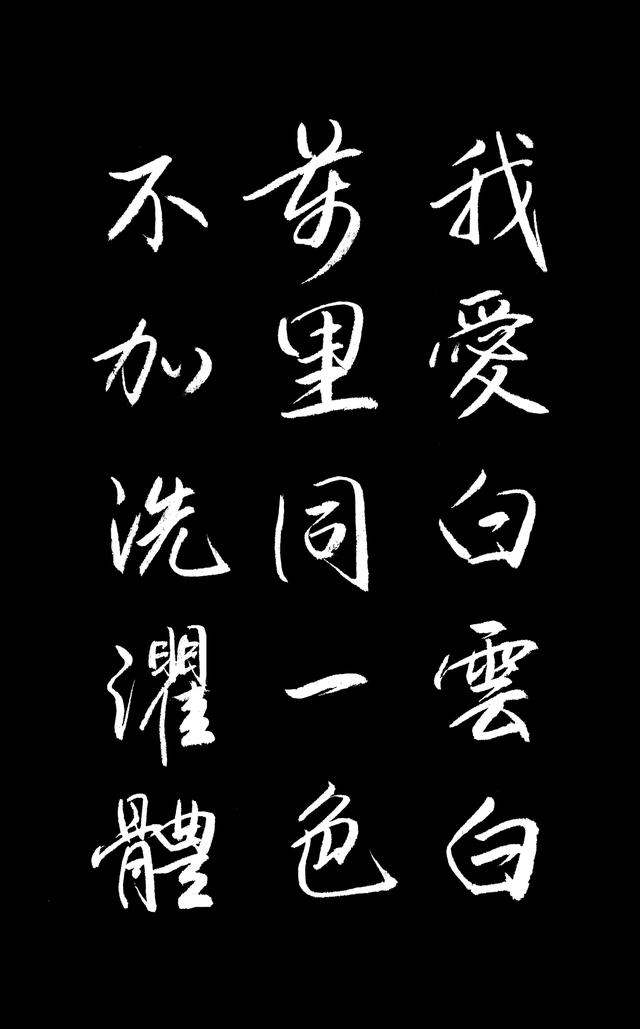 我愛白雲白
萬里同一色
不加洗濯體